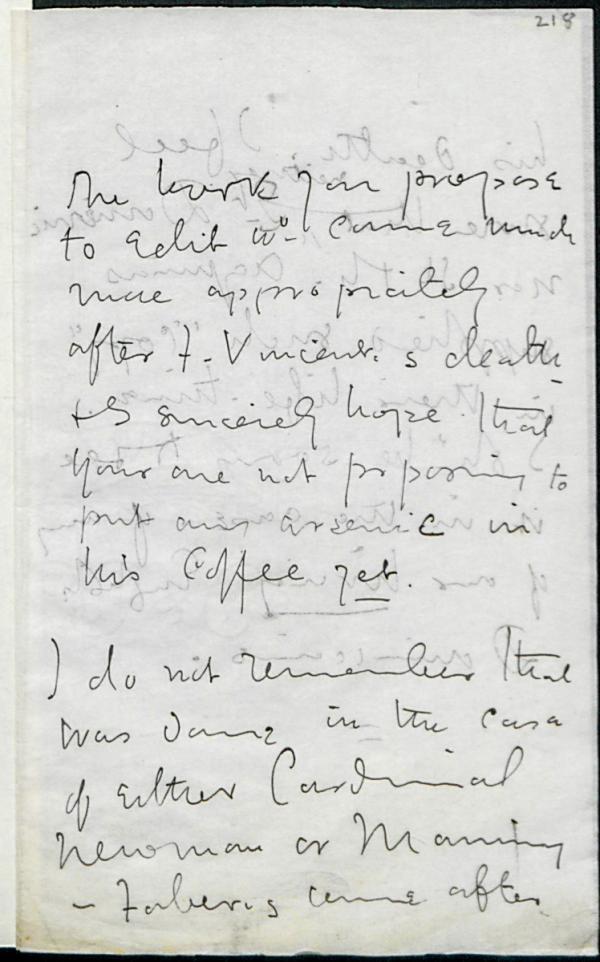 218
The work you propose
to edit wd. come much
more appropriately
after F. Vincent's death
& I sincerely hope that
you are not proposing to
put any arsenic in
his Coffee yet.
I do not remember that
was done in the case
of either Cardinal
Newman or Manning
- Faber's came after